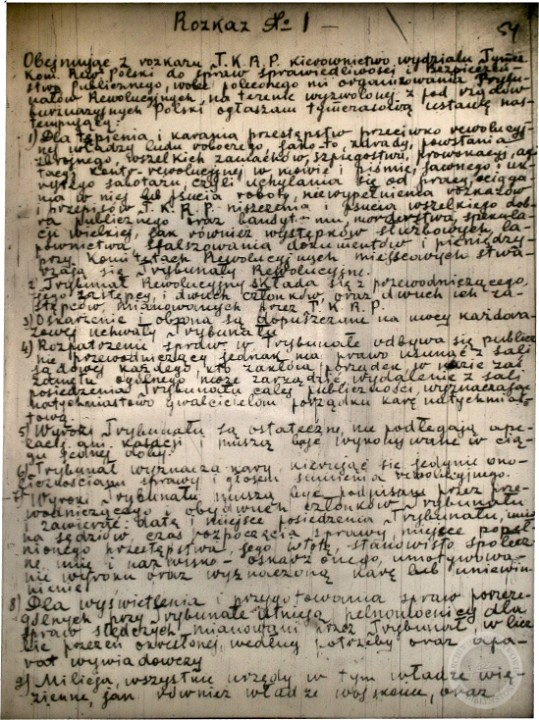 Rozkaz № 1 -
54
Obejmując z rozkazu T.K.R.P. kierownictwo wydziału Tymcz.
Kom. Rew. Polski do spraw sprawiedliwości i Bezpieczeń-
stwa Publicznego, wobec poleconego mi organizowania Trybu-
nałów Rewolucyjnych, na terenie wyzwolonej z pod rządów
burżuazyjnych Polski ogłaszam tymczasową ustawę nas-
tępującą:
1) Dla tępienia i karania przestępstw przeciwko rewolucyj-
nej władzy ludu roboczego, jako to, zdrady, powstania
zbrojnego, wszelkich zamachów, szpiegostwa, prowokacji, agi-
tacji kontr-rewolucyjnej w mowie i piśmie, jawnego i uk-
rytego sabotażu, czyli uchylania się od pracy, ociąga-
nia w niej lub psucia roboty, niewypełnienia rozkazów
i przepisów T.K.R.P. niszczenia i psucia wszelkiego dob-
ra publicznego oraz bandyt-mu, morderstwa, spekula-
cji wielkiej, jak również występków służbowych, ła-
pownictwa fałszowania dokumentów i pieniędzy
przy Komitetach Rewolucyjnych miejscowych stwa-
rzają się Trybunały Rewolucyjne.
2. Trybunał Rewolucyjny składa się z przewodniczącego,
jego zastępcy, i dwuch członków, oraz dwuch ich za-
stępców, mianowanych przez T.K.R.P.
3) Oskarżenie i obrona są dopuszczane na mocy każdora-
zowej uchwały Trybunału.
4) Rozpatrzenie spraw w Trybunale odbywa się publicz-
nie przewodniczący jednak ma prawo usunąć z sali
sądowej każdego, kto zakłóca porządek, w razie zaś
zamętu ogólnego może zarządzić wydalenie z sali
posiedzenia Trybunału całej publiczności wyznaczając
natychmiastowo gwałcicielom porządku karę natychmias-
tową.
5) Wyroki Trybunału są ostateczne, nie podlegają ape-
lacji ani kasacji muszą być wykonywane w cią-
gu jednej doby.
6) Trybunał wyznacza kary kierując się jedynie oko-
licznościami sprawy i głosem sumienia rewolucyjnego.
7) Wyroki Trybunału muszą być podpisane przez prze-
wodniczącego i obydwuch członków Trybunału
zawierać: datę i miejsce posiedzenia Trybunału, imio-
na sędziów, czas rozpoczęcia sprawy, miejsce popeł-
nionego przestępstwa, jego istotę, stanowisko społecz-
ne, imię i nazwisko - oskarżonego, umotywowa-
nie wyroku oraz wyznaczoną karę lub uniewin-
nienie.
8) Dla wyświetlenia i przygotowania spraw poszcze-
gólnych przy Trybunale istnieją pełnomocnicy dla
spraw śledczych mianowani przez Trybunał, w licz-
bie przezeń określonej, według potrzeby oraz apa-
rat wywiadowczy
9) Milicja, wszystkie urzędy w tym władze wię-
zienne, jak również władze wojskowe, oraz